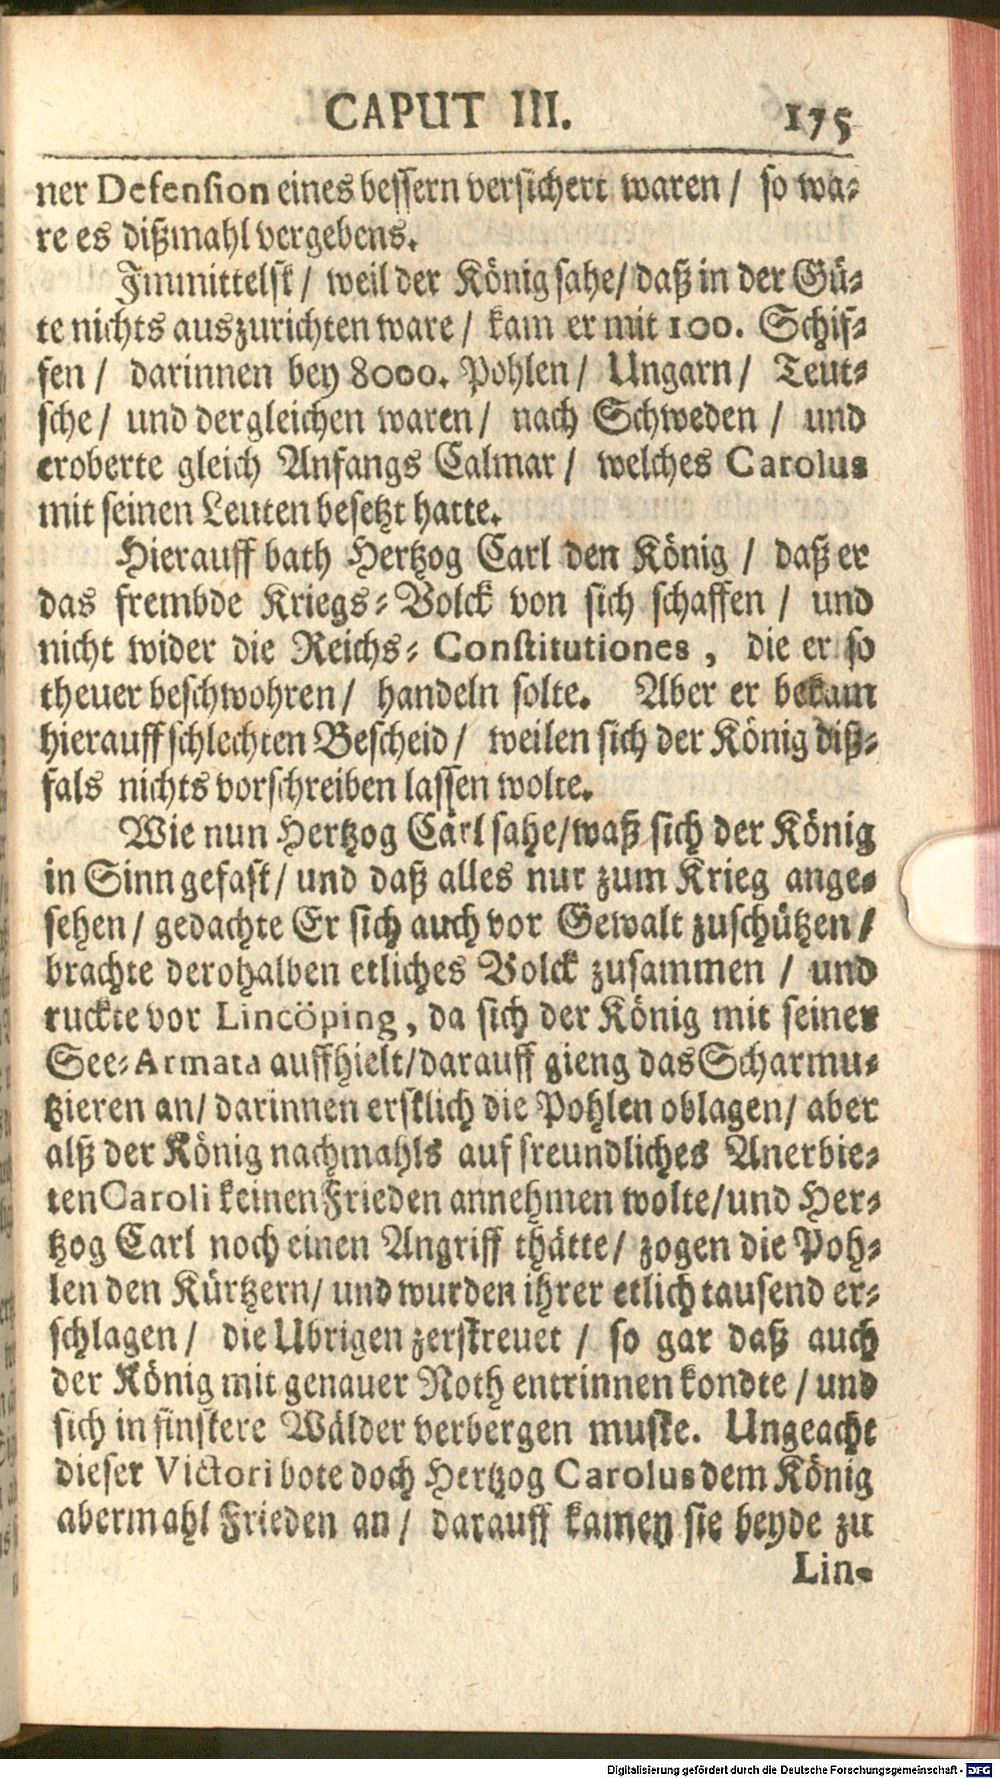 CAPUT III. 175
ner Defension eines bessern versichert waren / so wa-
re es dißmahl vergebens.
Immittelst / weil der König sahe / daß in der Gü-
te nichts auszurichten ware / kam er mit 100. Schif-
fen / darinnen bey 8000. Pohlen / Ungarn / Teut-
sche / und dergleichen waren / nach Schweden / und
eroberte gleich Anfangs Calmar / welches Carolus
mit seinen Leuten besetzt hatte.
Hierauff bath Hertzog Carl den König / daß er
das frembde Kriegs-Volck von sich schaffen / und
nicht wider die Reichs-Constitutiones, die er so
theuer beschwohren / handeln solte. Aber er bekam
hierauff schlechten Bescheid / weilen sich der König diß-
fals nichts vorschreiben lassen wolte.
Wie nun Hertzog Carl sahe / waß sich der König
in Sinn gefast / und daß alles nur zum Krieg ange-
sehen / gedachte Er sich auch vor Gewalt zuschützen /
brachte derohalben etliches Volck zusammen / und
ruckte vor Lincöping, da sich der König mit seiner
See-Armata auffhielt / darauff gieng das Scharmu-
tzieren an / darinnen erstlich die Pohlen oblagen / aber
alß der König nachmahls auf freundliches Anerbie-
ten Caroli keinen Frieden annehmen wolte / und Her-
tzog Carl noch einen Angriff thätte / zogen die Poh-
len den Kürtzern / und wurden ihrer etlich tausend er-
schlagen / die Ubrigen zerstreuet / so gar daß auch
der König mit genauer Noth entrinnen kondte / und
sich in finstere Wälder verbergen muste. Ungeacht
dieser Victori bote doch Hertzog Carolus dem König
abermahl Frieden an / darauff kamen sie beyde zu
Lin-
Digitalisierung gefördert durch die Deutsche Forschungsgemeinschaft - DFG